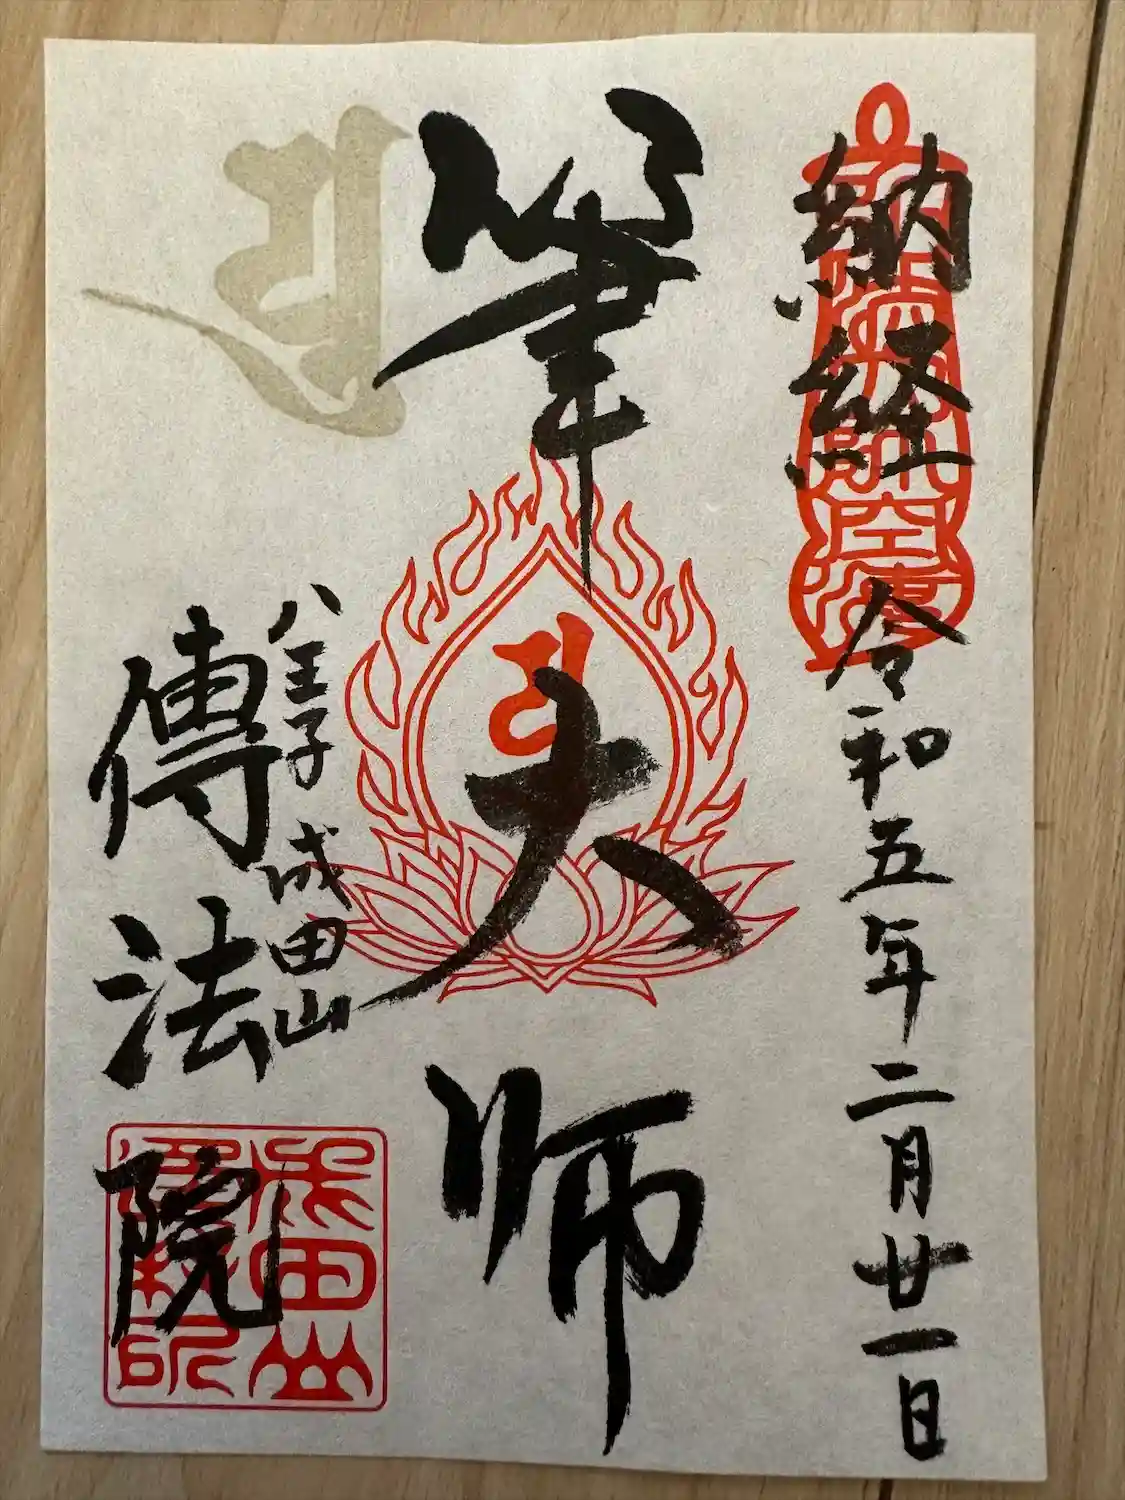 納経 令和五年二月廿一日
筆大師
八王子 成田山
傳法院
成田山